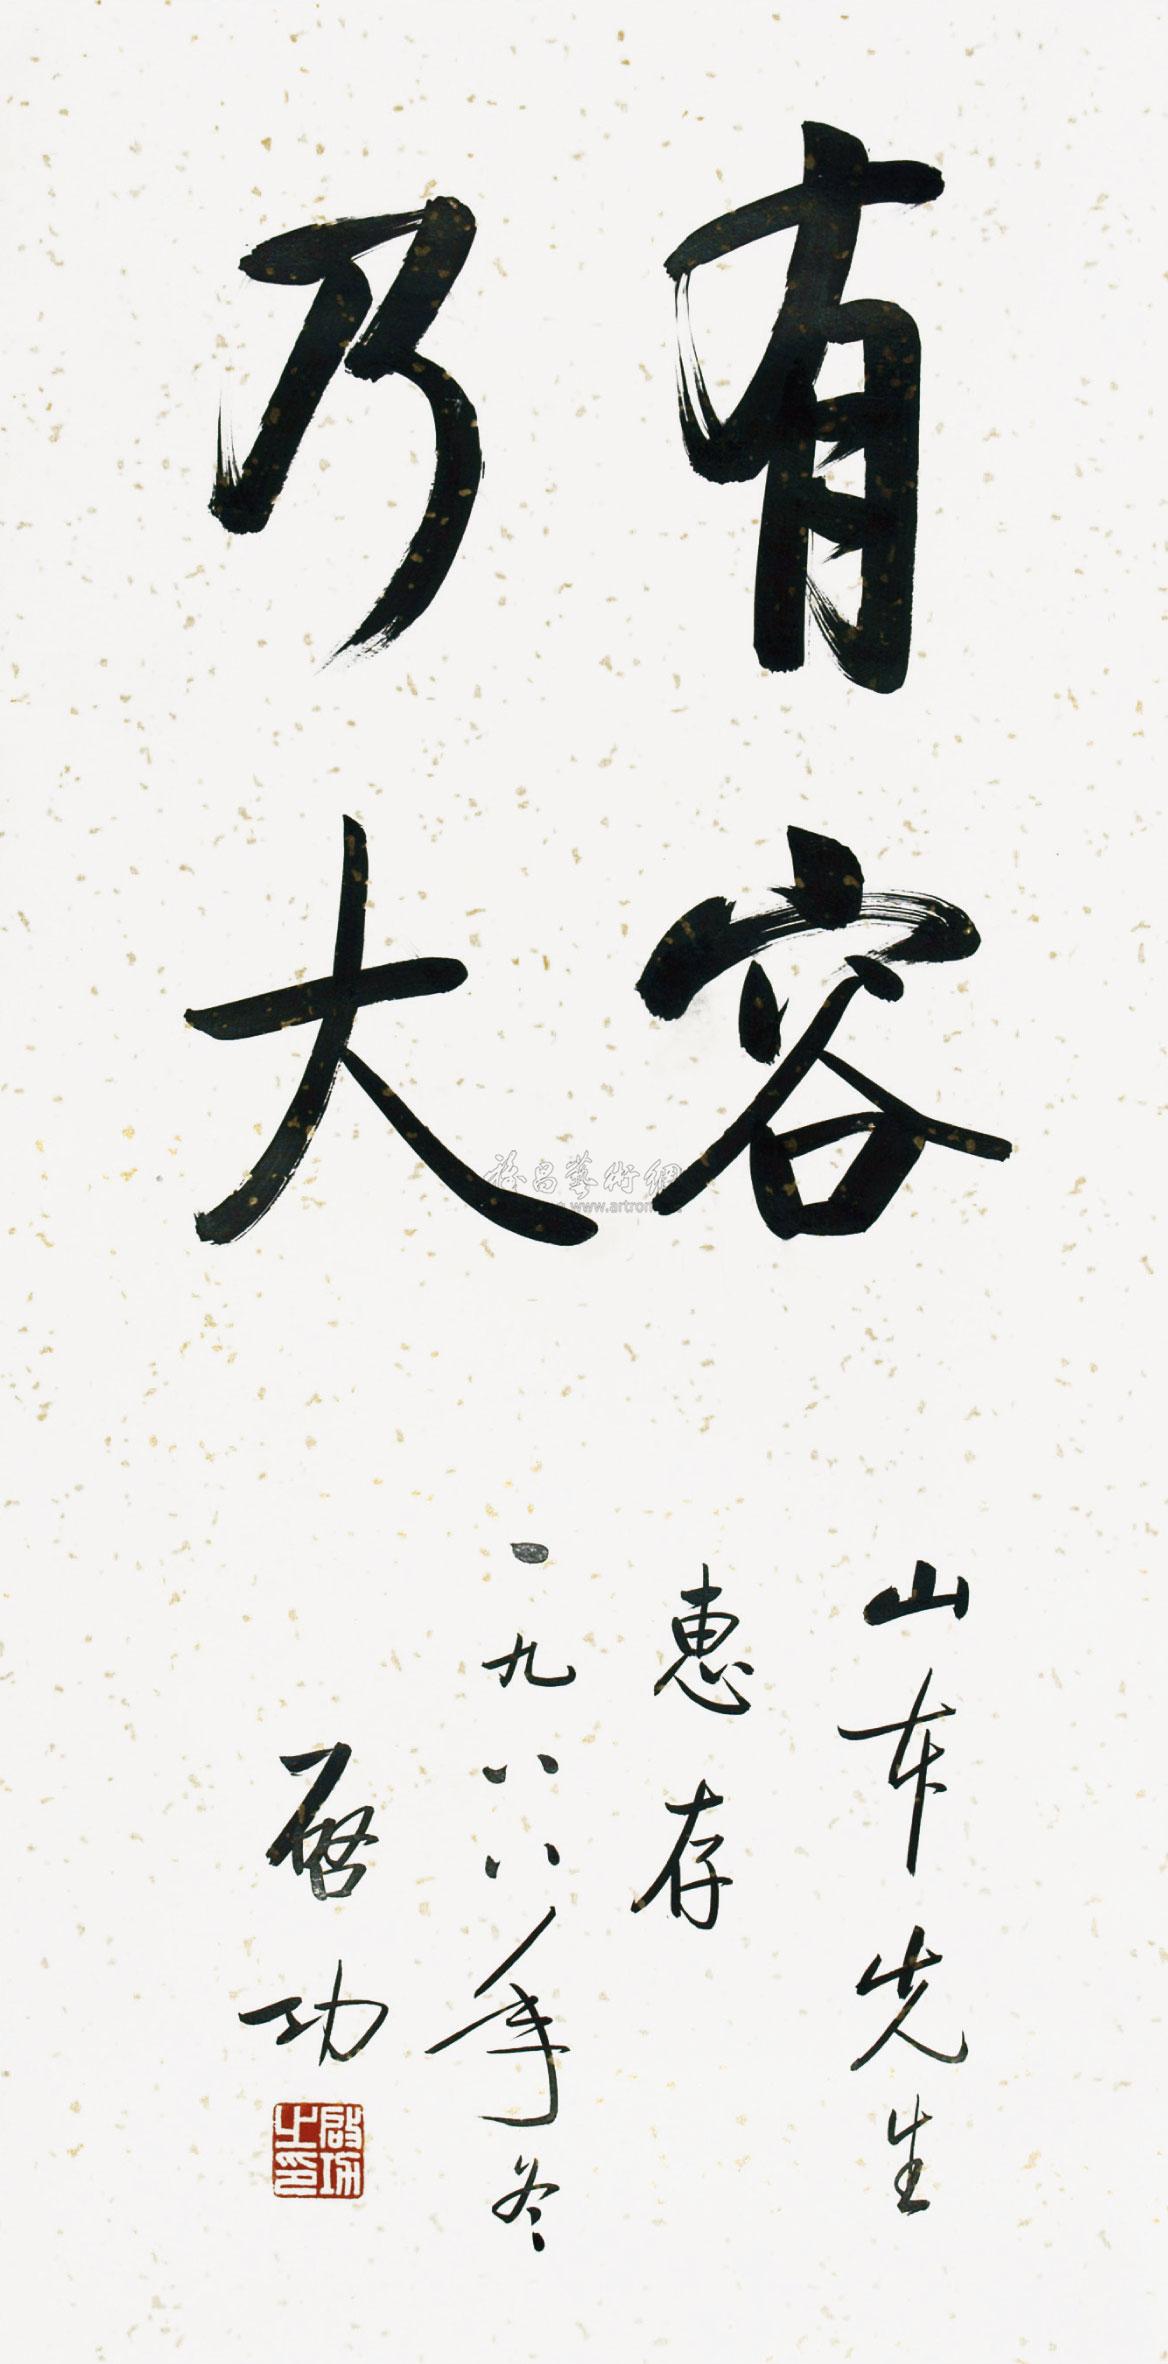 有容
乃大
山本先生
惠存
一九八八年冬
启功
啟功之印
雅昌藝術網
www.artron.